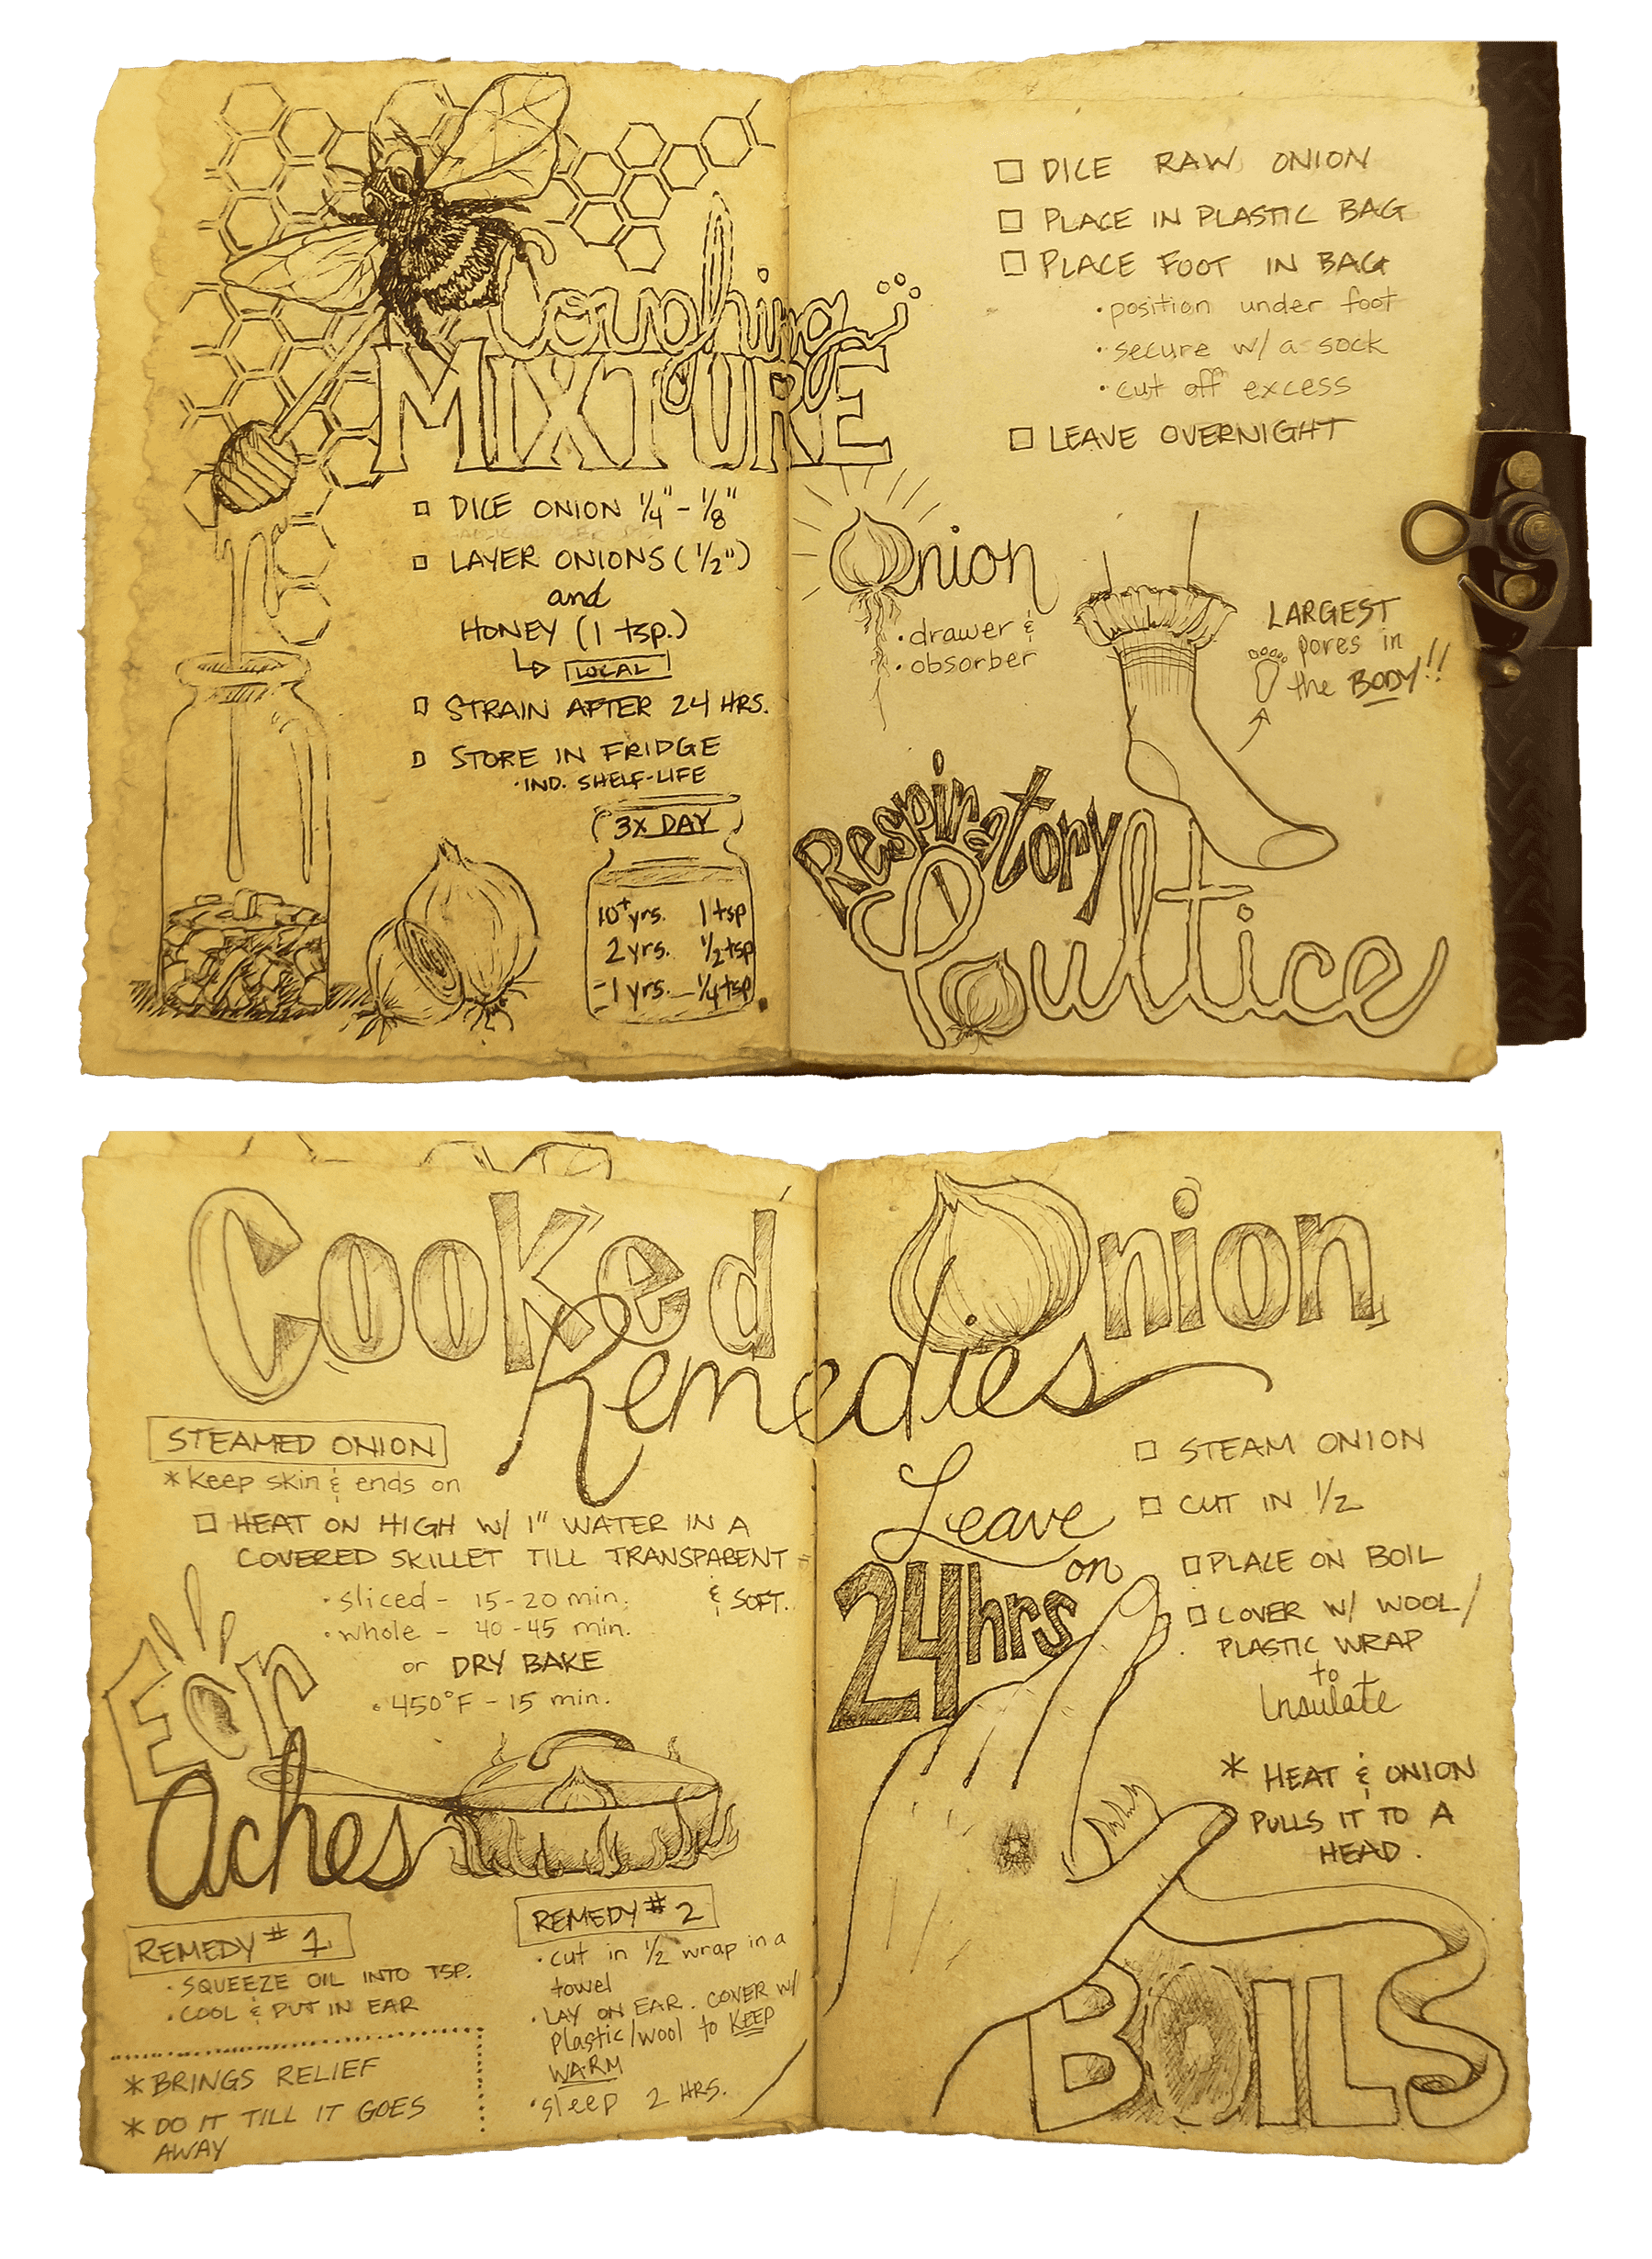 Coughing
MIXTURE
DICE ONION 1/4" - 1/8"
LAYER ONIONS (1/2")
and
HONEY (1 tsp.)
LOCAL
STRAIN AFTER 24 HRS.
STORE IN FRIDGE
· IND. SHELF-LIFE
3X DAY
10+ yrs. 1 tsp
2 yrs. 1/2 tsp
-1 yrs. - 1/4 tsp
DICE RAW ONION
PLACE IN PLASTIC BAG
PLACE FOOT IN BAG
· position under foot
· secure w/ a sock
· cut off excess
LEAVE OVERNIGHT
Onion
· drawer &
· obsorber
LARGEST
pores in
the BODY!!
Respiratory
Poultice
Cooked Onion
Remedies
STEAMED ONION
* Keep skin & ends on
HEAT ON HIGH W/ 1" WATER IN A
COVERED SKILLET TILL TRANSPARENT
& SOFT.
· sliced - 15-20 min.
· whole - 40-45 min.
or DRY BAKE
· 450°F - 15 min.
Ear
Aches
REMEDY #1
· SQUEEZE OIL INTO TSP.
· COOL & PUT IN EAR
* BRINGS RELIEF
* DO IT TILL IT GOES
AWAY
REMEDY #2
· cut in 1/2 wrap in a
towel
· LAY ON EAR. COVER W/
plastic/wool to KEEP
WARM
· sleep 2 HRS.
Leave
on
24hrs
STEAM ONION
CUT IN 1/2
PLACE ON BOIL
COVER W/ WOOL/
PLASTIC WRAP
to
Insulate
* HEAT & ONION
PULLS IT TO A
HEAD.
BOILS